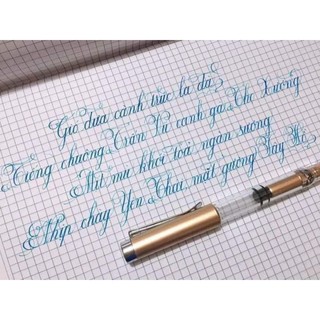 Gió đưa cành trúc la đà
Tiếng chuông Trấn Vũ canh gà Thọ Xương
Mịt mù khói toả ngàn sương
Nhịp chày Yên Thái, mặt gương Tây Hồ